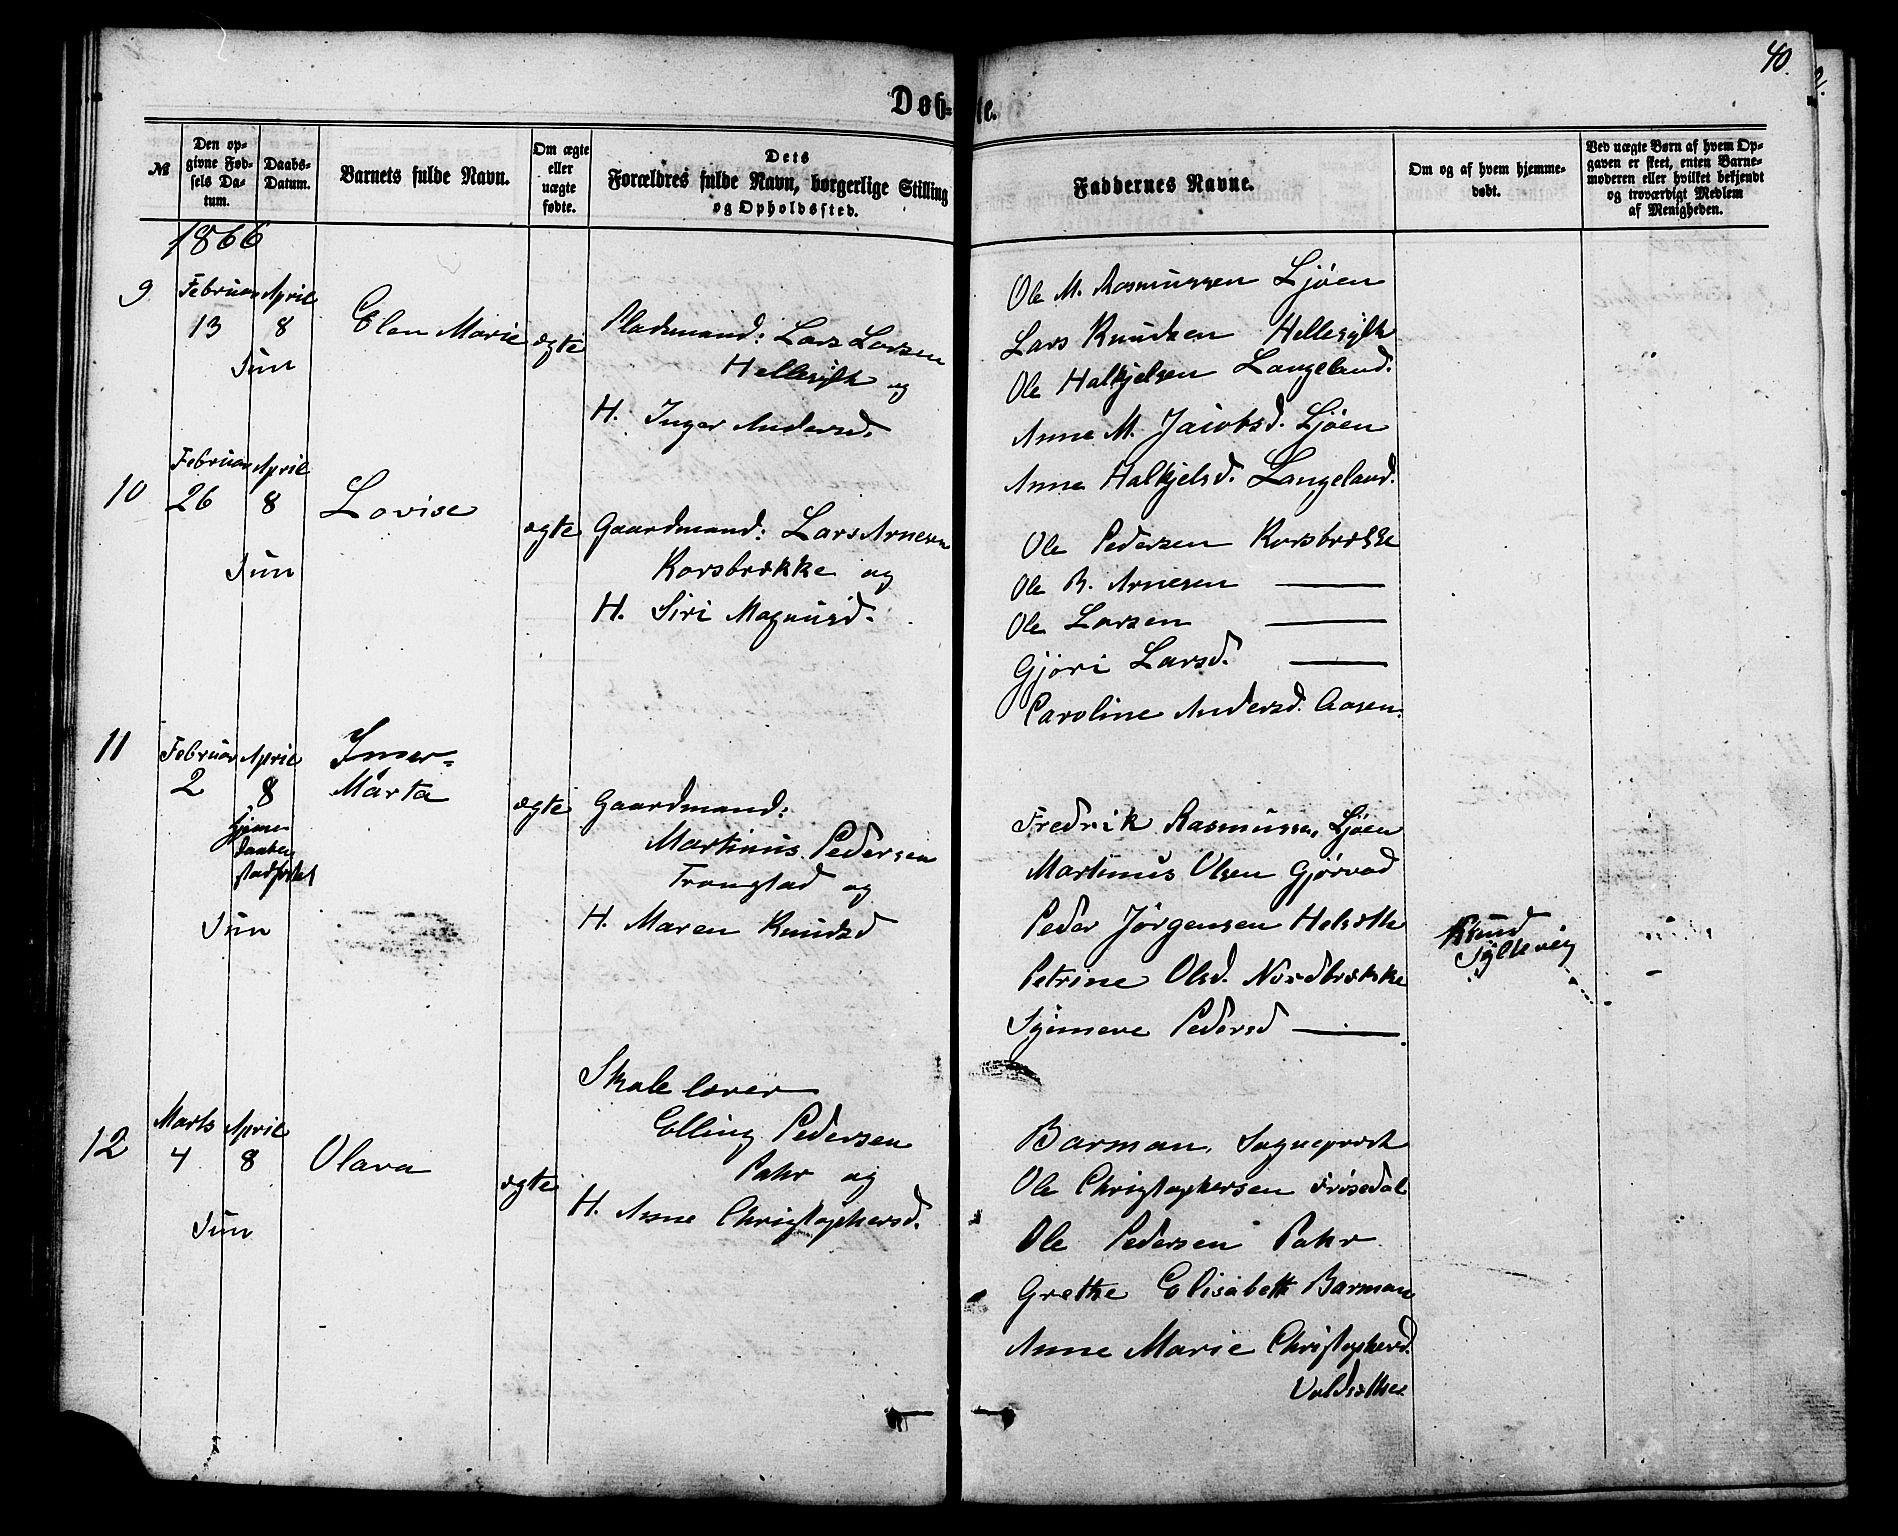 40.
Døb- te.
№
Den opgivne Fødsels Datum.
Daabs-Datum.
Barnets fulde Navn.
Om ægte eller uægte fødte.
Dets Forældres fulde Navn, borgerlige Stilling og Opholdssted.
Faddernes Navne.
Om og af hvem hjemmedøbt.
Ved uægte Børn af hvem Opgaven er skeet, enten Barnemoderen eller hvilket bekjendt og troværdigt Medlem af Menigheden.
1866
9
Februar 13
April 8
Sun
Elen Marie
ægte
Pladsmand: Lars Larsen
Hellesylt og
H. Inger Andersd.
Ole M. Rasmussen Ljøen
Lars Knudsen Hellesylt
Ole Halkjelsen Langeland.
Anne M. Jacobsd. Ljøen
Anne Halkjelsd. Langeland.
10
Februar 26
April 8
Sun
Lovise
ægte
Gaardmand: Lars Arnesen
Korsbrække og
H. Siri Magnusd.
Ole Pedersen Korsbrække
Ole R. Arnesen ——
Ole Larsen ——
Gjøri Larsd. ——
Caroline Andersd. Aasen.
11
Februar 2
April 8
Hjemmedaaben stadfæstet
Sun
Inger-
Marta
ægte
Gaardmand:
Martinus Pedersen
Tronstad og
H. Maren Knudsd
Fredrik Rasmussen Ljøen
Martinus Olsen Gjørvad
Peder Jørgensen Helsæth
Petrine Olsd. Nordbrække
Synneve Pedersd ——
Knud
Syltevig
12
Marts 4
April 8
Sun
Olava
ægte
Skolelærer
Elling Pedersen
Tahr og
H. Anne Christophersd.
Barman, Sogneprest
Ole Christophersen Frøsedal
Ole Pedersen Tahr
Grethe Elisabeth Barman
Anne Marie Christophersd.
Voldsæther